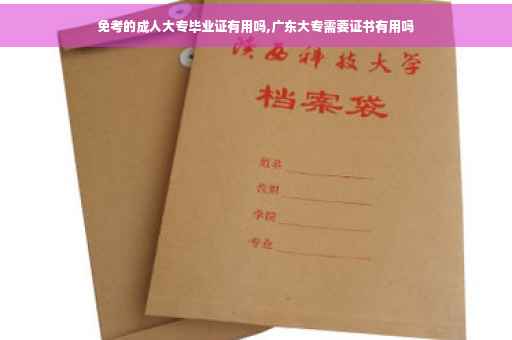 免考的成人大专毕业证有用吗,广东大专需要证书有用吗
陕西科技大学
档案袋
姓名
教职
学院
专业